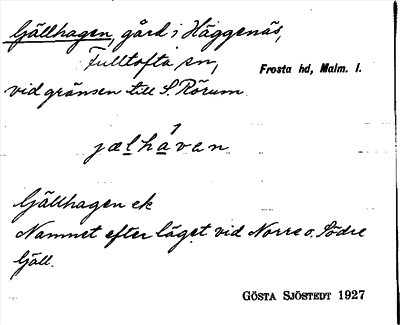 Gjällhagen, gård i Häggenäs,
Fulltofta sn,
Frosta hd, Malm. l.
vid gränsen till S. Rörum.
jælhávan
Gjällhagen ek
Namnet efter läget vid Norre o. Södre
Gjäll.
GÖSTA SJÖSTEDT 1927